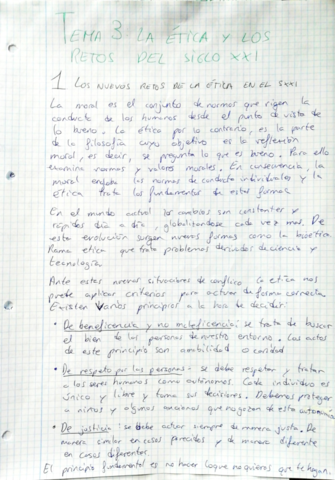 TEMA 3: LA ÉTICA Y LOS
RETOS DEL SIGLO XXI
1 LOS NUEVOS RETOS DE LA ÉTICA EN EL SXXI
La moral es el conjunto de normas que rigen la
conducta de los humanos desde el punto de vista de
lo bueno. La ética por lo contrario, es la parte
de la filosofía cuyo objetivo es la reflexión
moral, es decir, se pregunta lo que es bueno. Para ello
examina normas y valores morales. En consecuencia, la
moral engloba las normas de conducta individuales y la
ética trata los fundamentos de estas formas.
En el mundo actual los cambios son constantes y
rápidos día a día, globalizandose cada vez mas. De
esta evolución surgen nuevas formas como la bioética.
Rama etica que trata problemas derivados de ciencia y
tecnología.
Ante estas nuevas situaciones de conflicto la etica nos
pide aplicar criterios para actuar de forma correcta.
Existen varios principios a la hora de decidir:
• De beneficencia y no maleficencia: se trata de buscar
el bien de las personas de nuestro entorno. Los actos
de este principio son amabilidad o caridad
• De respeto por las personas - se debe respetar y tratar
a los seres humanos como autónomos. Cada individuo es
único y libre y toma sus decisiones. Debemos proteger
a niños y algunos ancianos que no gozan de esta autonomía
• De justicia - se debe actuar siempre de manera justa. De
manera similar en casos parecidos y de manera diferente
en casos diferentes.
El principio fundamental es no hacer lo que no quieres que te hagan.